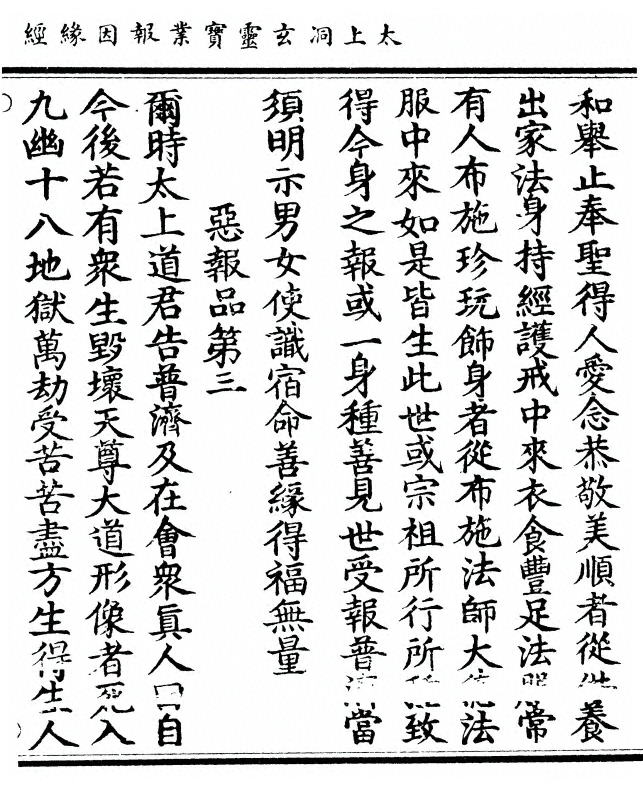 太上洞玄靈寶業報因緣經
和舉止奉聖得人愛念恭敬美順者從供養
出家法身持經護戒中來衣食豐足法服常
有人布施珍玩飾身者從布施法師大德法
服中來如是皆生此世或宗祖所行所致
得今身之報或一身種善見世受報普濟當
須明示男女使識宿命善緣得福無量
惡報品第三
爾時太上道君告普濟及在會衆眞人曰自
今後若有衆生毀壞天尊大道形像者死入
九幽十八地獄萬劫受苦苦盡方生得生人